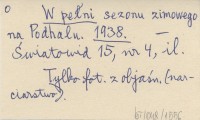 o
W pełni sezonu zimowego
na Podhalu. 1938. —
Światowid 15, nr 4, il.
Tylko fot. z objaśn. (nar-
ciarstwo).